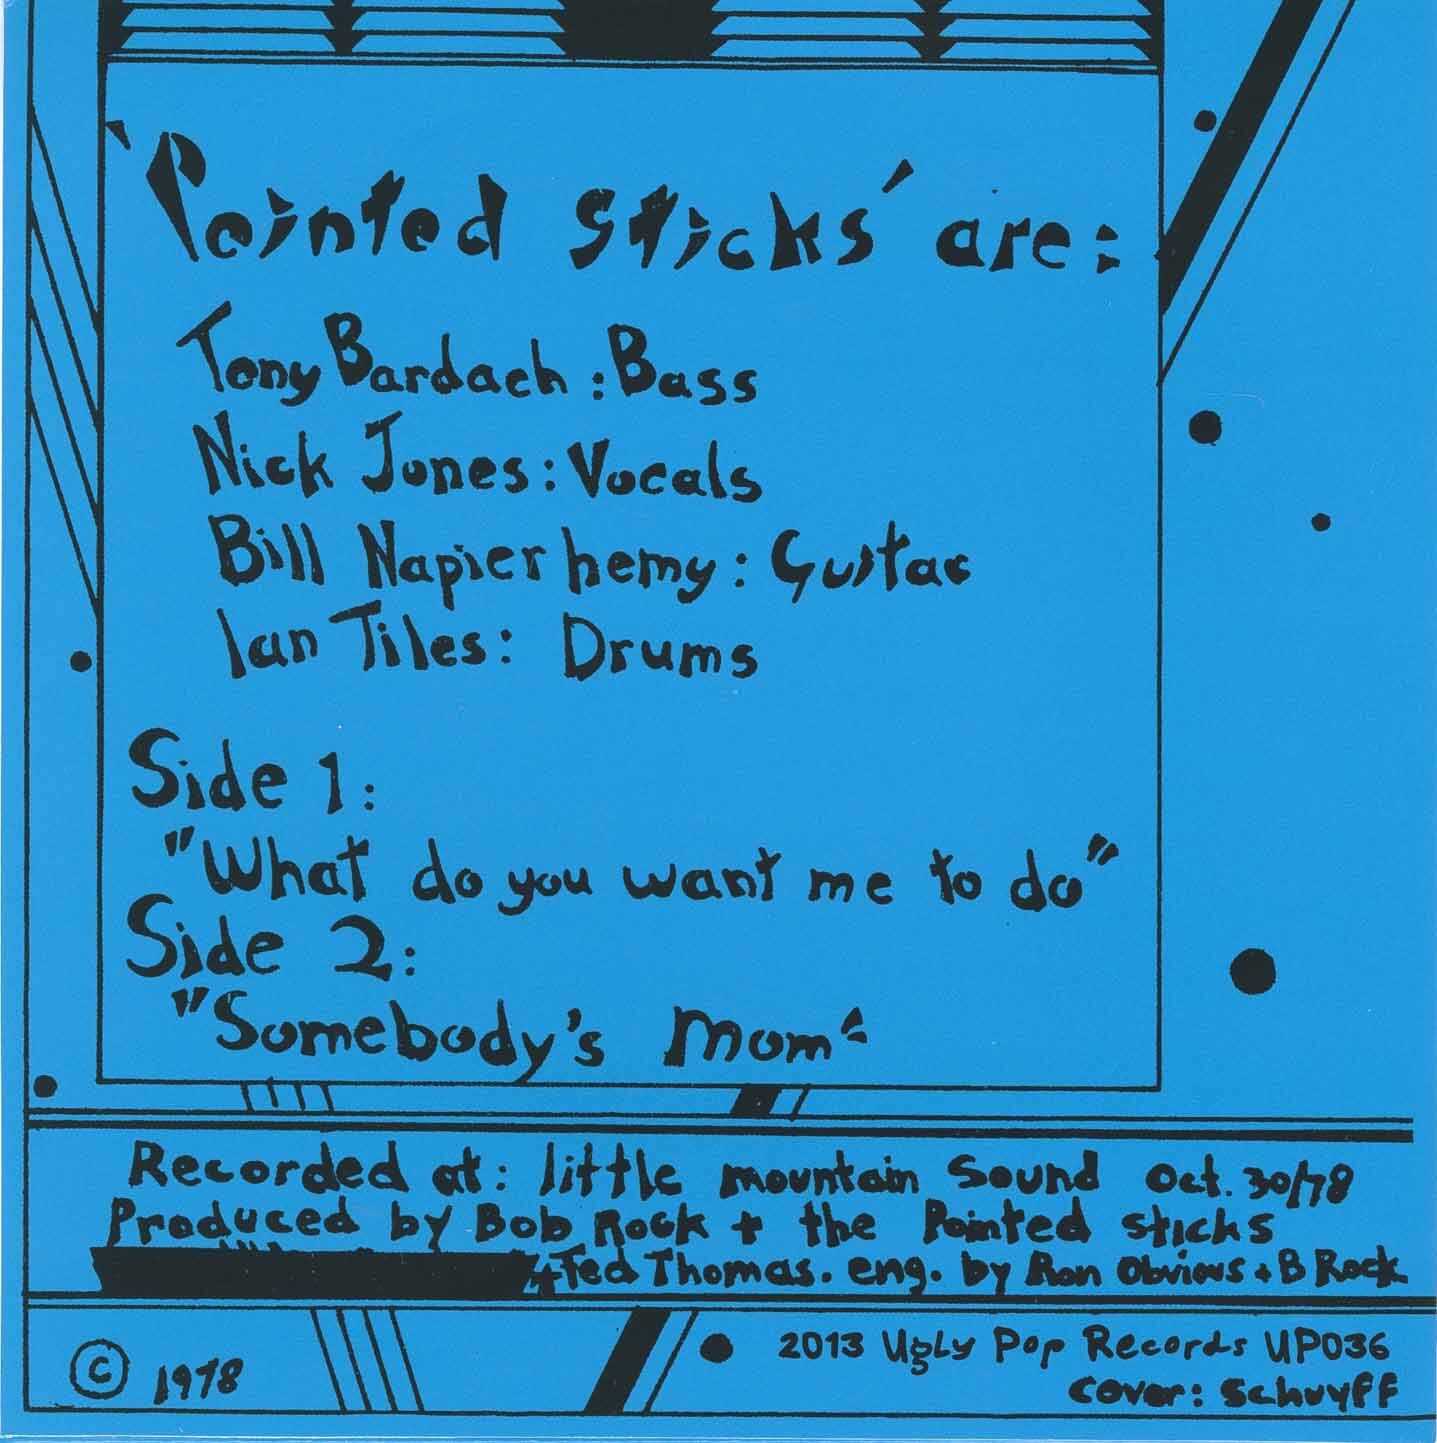 'Pointed Sticks' are:
Tony Bardach : Bass
Nick Jones : Vocals
Bill Napier hemy : Guitar
Ian Tiles : Drums
Side 1:
"What do you want me to do"
Side 2:
"Somebody's Mom"
Recorded at: little mountain Sound Oct. 30/78
Produced by Bob Rock + the Pointed sticks
+ Ted Thomas. eng. by Ron Obvious + B Rock
© 1978
2013 Ugly Pop Records UP036
cover: Schuyff